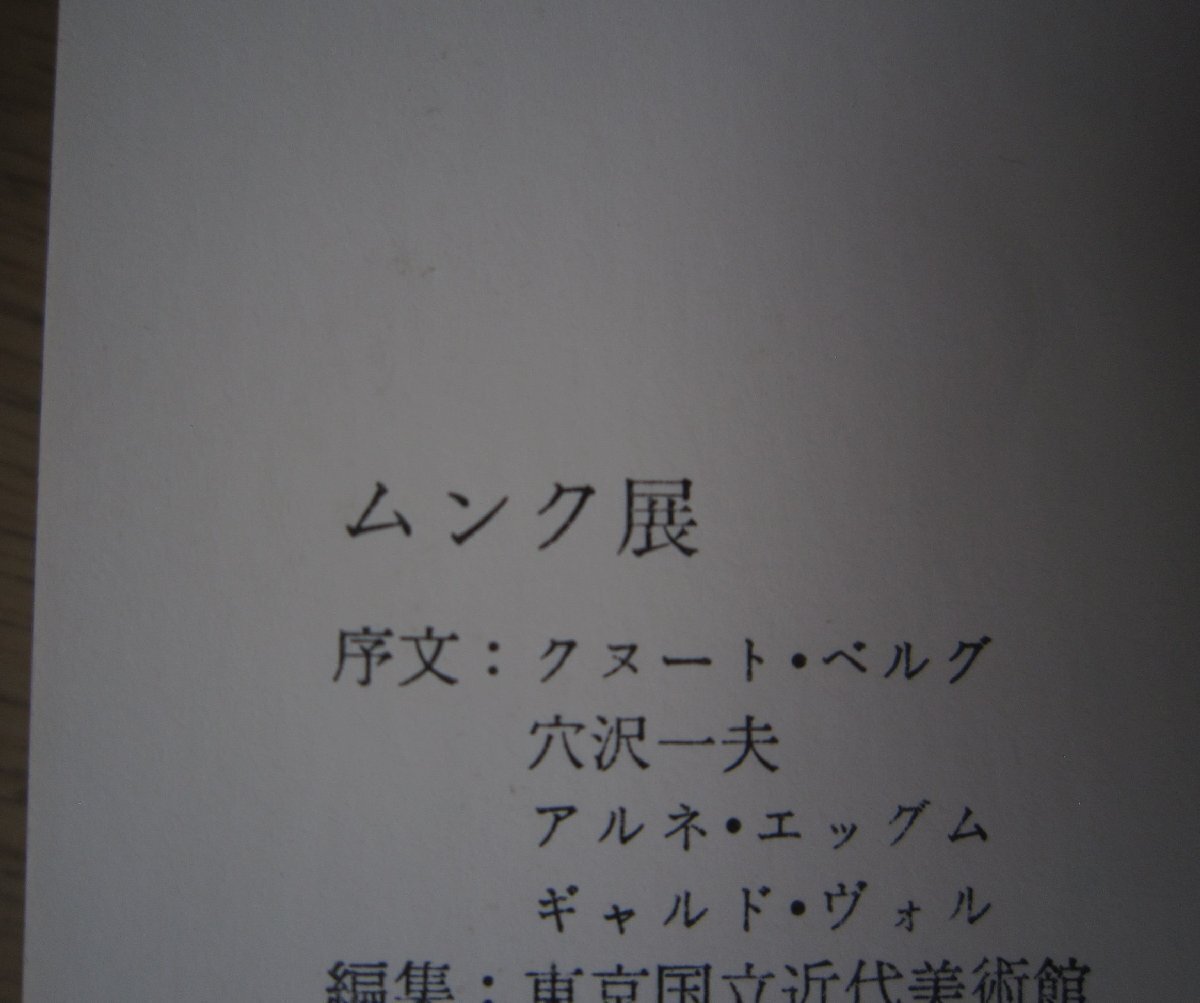 ムンク展
序文：クヌート・ベルグ
穴沢一夫
アルネ・エッグム
ギャルド・ヴォル
編集：東京国立近代美術館